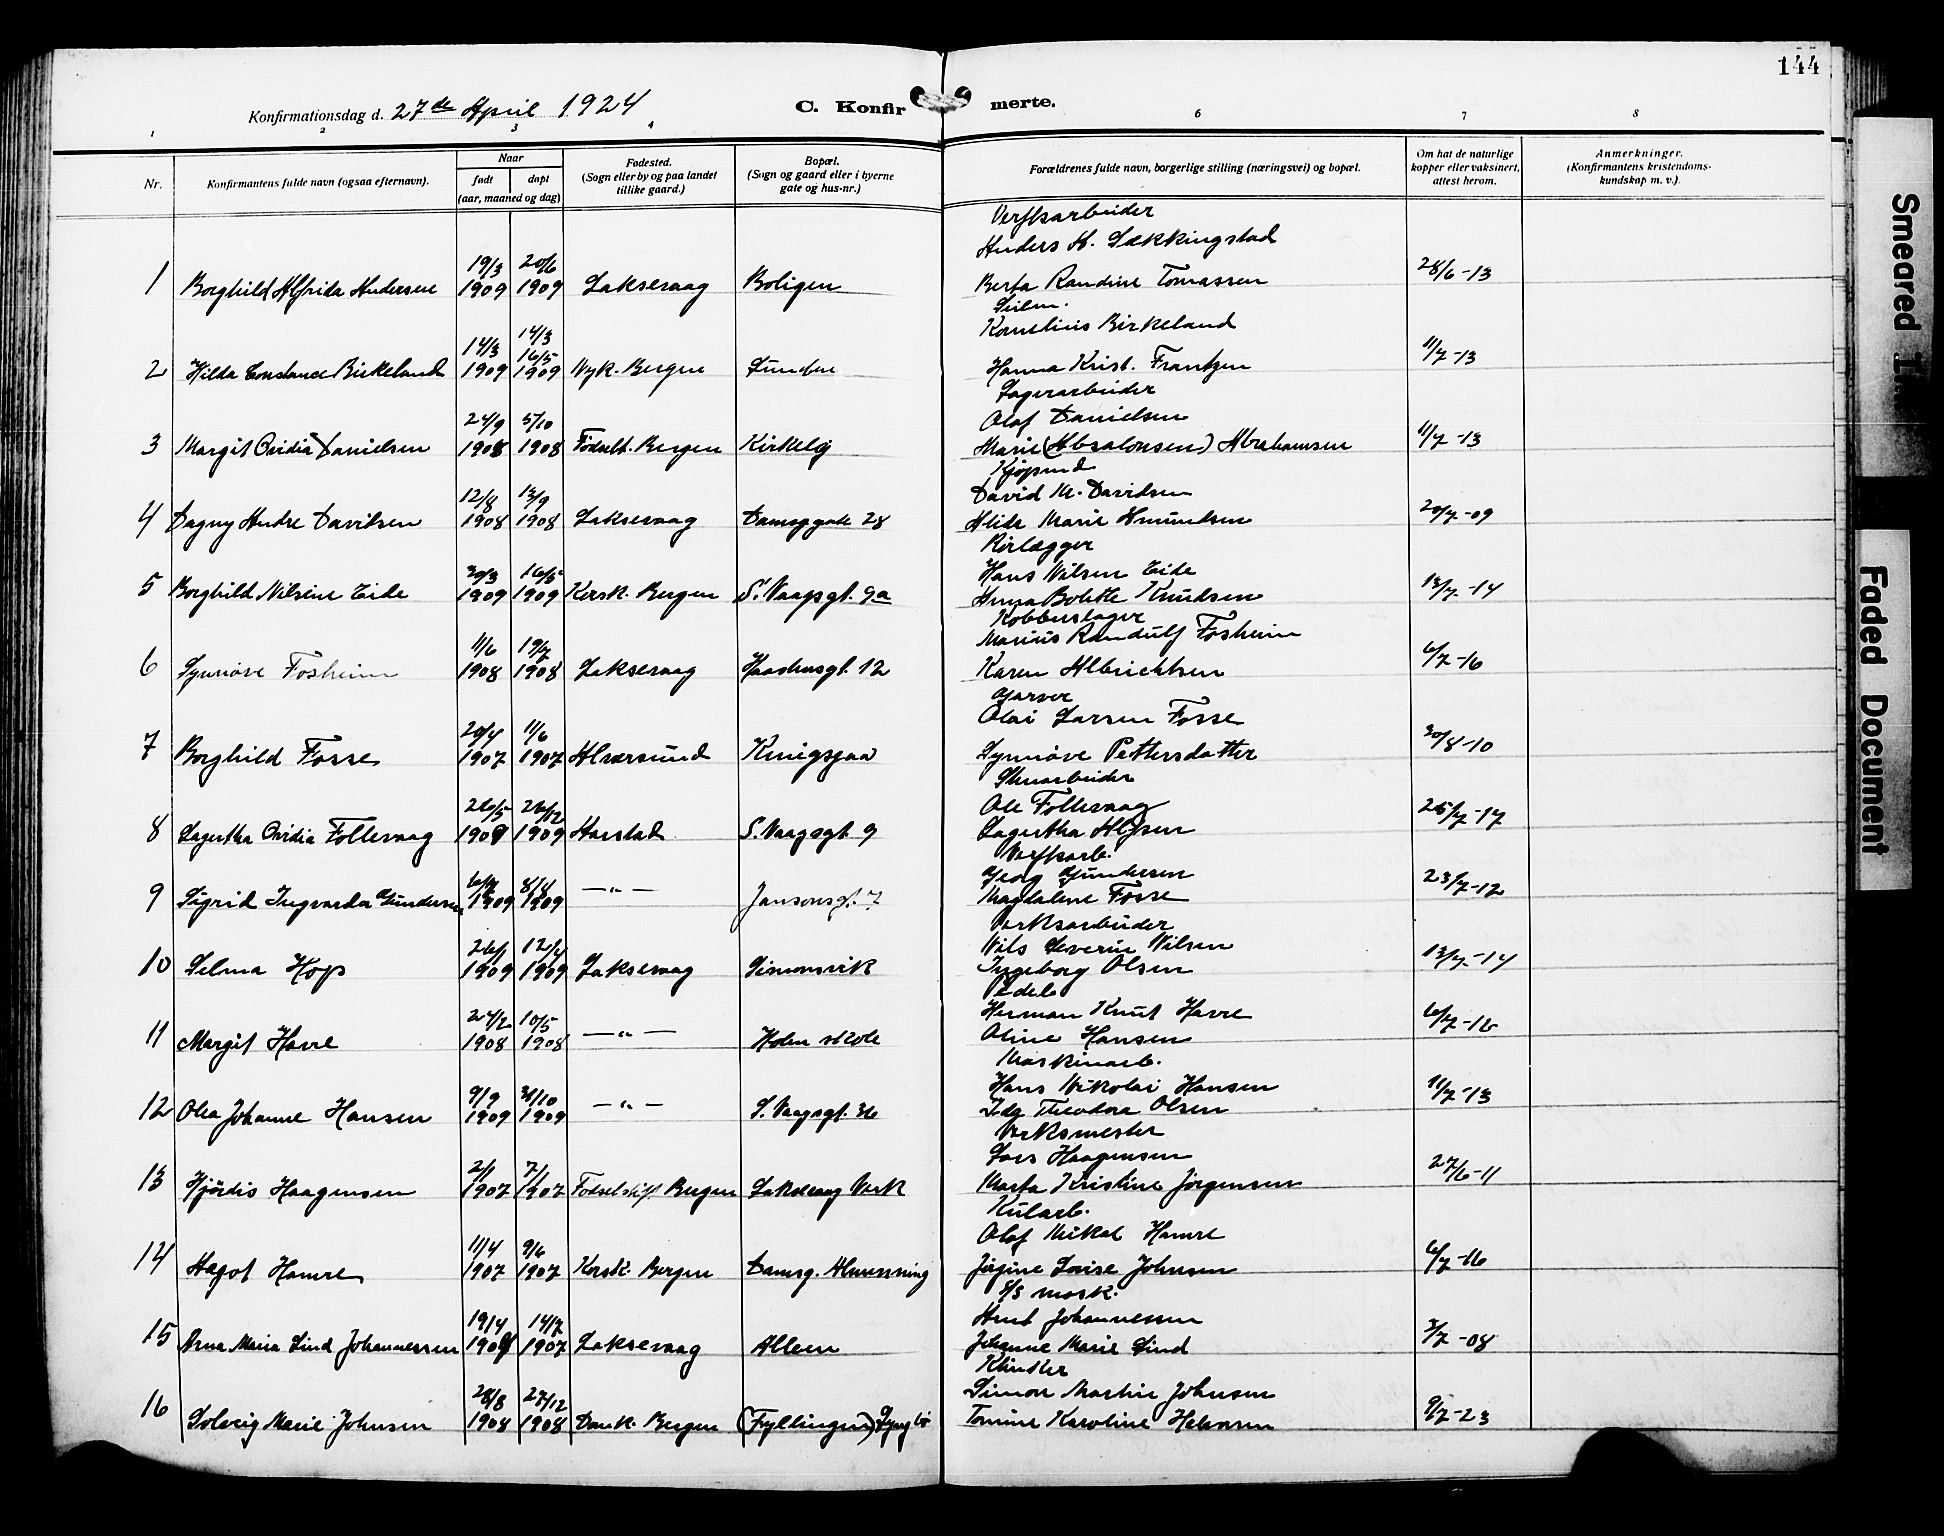 144
Konfirmationsdag d. 27de April 1924
C. Konfirmerte.
1 2 3 4 6 7 8
Nr.
Konfirmantens fulde navn (ogsaa efternavn).
Naar
født døpt
(aar, maaned og dag)
Fødested.
(Sogn eller by og paa landet
tillike gaard.)
Bopæl.
(Sogn og gaard eller i byerne
gate og hus-nr.)
Forældrenes fulde navn, borgerlige stilling (næringsvei) og bopæl.
Om hat de naturlige
kopper eller vaksinert,
attest herom.
Anmerkninger.
(Konfirmantens kristendoms-
kundskap m. v.).
Verftsarbeider
Anders H. Lækkingstad
19/3 20/6
1 Borghild Alfrida Andersen 1909 1909 Laksevaag Boligen Berta Randine Tomassen 28/6-13
Kornelius Birkeland
14/3 14/3 16/5
2 Hilda Constance Birkeland 1909 1909 Nyk. Bergen Hanna Krist. Frantzen 11/7-13
Lagerarbeider
Olaf Danielsen
24/9 5/10
3 Margit Ovidia Danielsen 1908 1908 Bergen Marie (Absalonsen) Abrahamsen 11/7-13
David M. Davidsen
12/8 13/9
4 Dagny Andre Davidsen 1908 1908 Laksevaag Damsggate 28 Alida Marie Amundsen 20/7-09
Rørlægger
Hans Nilsen Eide
30/3 16/5
5 Borghild Nilsine Eide 1909 1909 Korsk. Bergen S. Vaagsgt. 9a Anna Bolette Knudsen 13/7-14
Kobberslager
Marius Randulf Fosheim
11/6 19/7
6 Synnøve Fosheim 1908 1908 Laksevaag 12 Karen Albrichtsen 6/7-16
Garver
Olai Larsen Fosse
20/4 11/6
7 Borghild Fosse 1907 1907 Alversund Synnøve Pettersdatter 30/8-10
Skuarbeider
Ole Follesvaag
26/12
8 Lagertha Ovidia Follesvaag 1909 1909 Harstad S. Vaagsgt. 9 Lagertha 25/7-17
Verftsarb.
Georg Gundersen
9 Sigrid Ingvarda Gundersen 1909 1909 —"— Jansonsgt. 7 Magdalene Fosse 23/7-12
Verksarbeider
Nils Severin Nilsen
26/1 12/4
10 Selma Hop 1909 1909 Laksevaag Simonsvik Ingeborg Olsen 13/7-14
Pedel
Herman Knut Havre
24/2 10/5
11 Margit Havre 1908 1908 —"— Holen skole Oline Hansen 6/7-16
Maskinarb.
Hans Nikolai Hansen
9/9 31/10
12 Olea Johanne Hansen 1909 1909 —"— S. Vaagsgt. Ida Theodora Olsen 11/7-13
Verksmester
Lars Haagensen
2/1 7/1
13 Hjördis Haagensen 1907 1907 Fødselstift. Bergen Laksevaag Verk Marta Kristine Jörgensen 27/6-11
Kularb.
Olaf Mikal Hamre
11/4 9/6
14 Hamre 1907 1907 Korsk. Bergen Damsg. Almenning Jörgine Lovise Johnsen 6/7-16
S/S mask.
Arnt Johannessen
19/4 14/7
15 Arna Maria Lind Johannessen 1907 Laksevaag Alleen Johanne Marie Lind 3/7-08
Klinker
Simon Martin Johnsen
28/8 27/12
16 Solveig Marie Johnsen 1908 1908 Domk. Bergen (Fyllingen) Tomine Karoline 9/7-23
Smeared
Faded Document